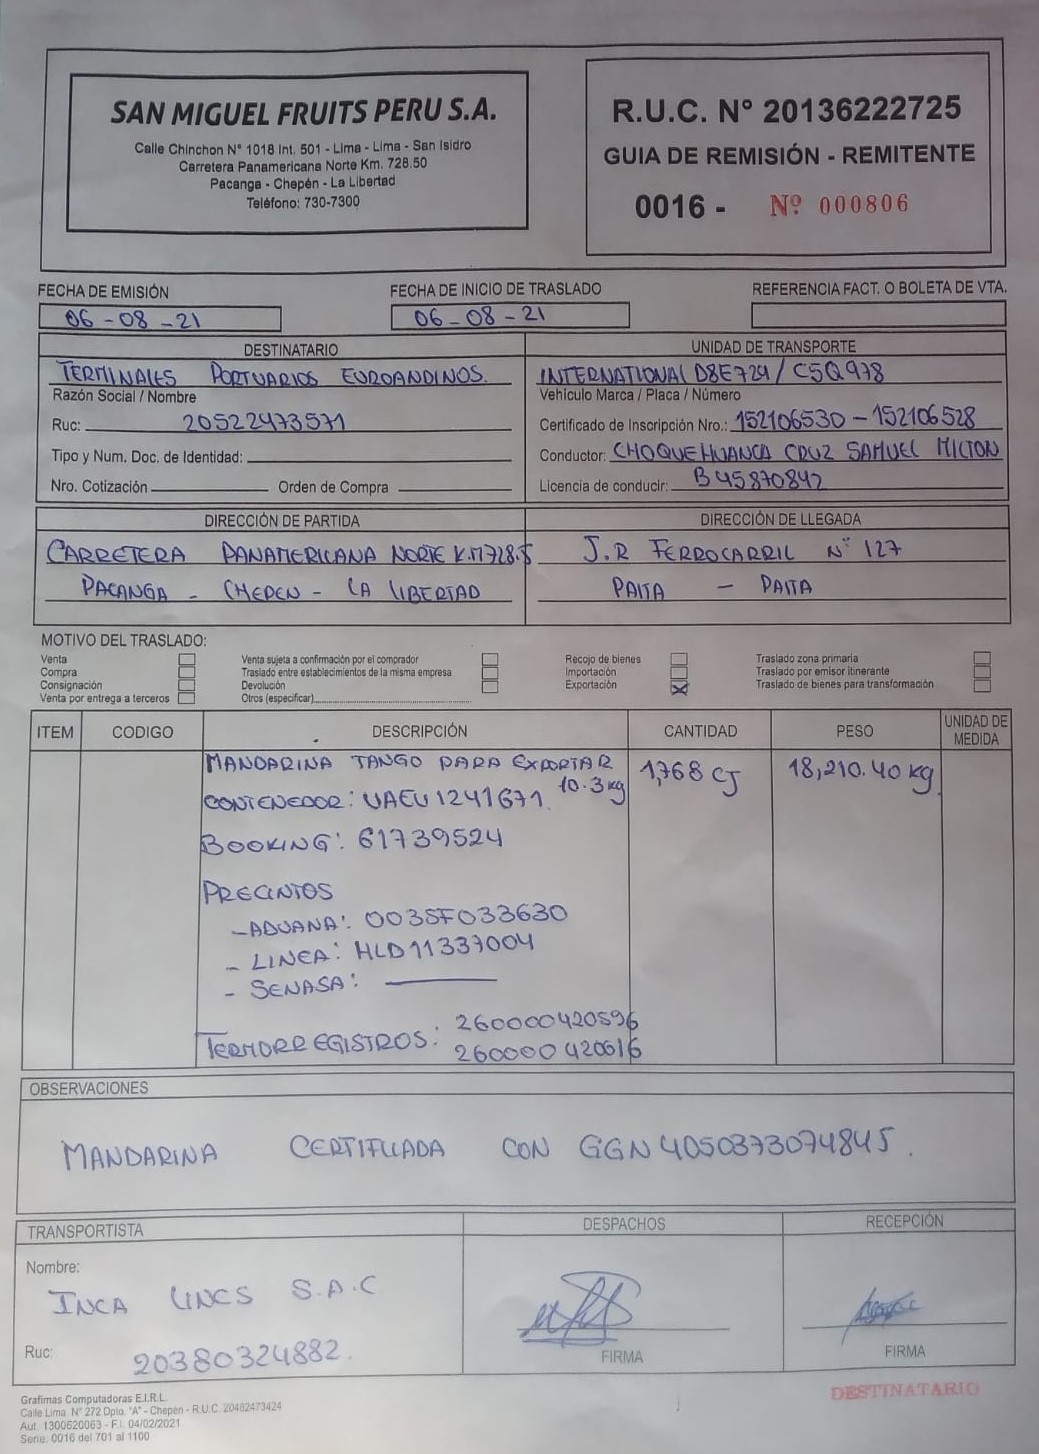 SAN MIGUEL FRUITS PERU S.A.
Calle Chinchon N° 1018 Int. 501 - Lima - Lima - San Isidro
Carretera Panamericana Norte Km. 728.50
Pacanga - Chepén - La Libertad
Teléfono: 730-7300
R.U.C. N° 20136222725
GUIA DE REMISIÓN - REMITENTE
0016 - Nº 000806
FECHA DE EMISIÓN
06-08-21
FECHA DE INICIO DE TRASLADO
06-08-21
REFERENCIA FACT. O BOLETA DE VTA.
DESTINATARIO
TERMINALES PORTUARIOS EUROANDINOS.
Razón Social / Nombre
Ruc: 20522473571
Tipo y Num. Doc. de Identidad:
Nro. Cotización Orden de Compra
UNIDAD DE TRANSPORTE
INTERNATIONAL D8E724 / C5Q978
Vehículo Marca / Placa / Número
Certificado de Inscripción Nro.: 152106530 - 152106528
Conductor: CHOQUEHUANCA CRUZ SAMUEL MILTON
Licencia de conducir: B45870842
DIRECCIÓN DE PARTIDA
CARRETERA PANAMERICANA NORTE K.M728.5
PACANGA - CHEPEN - LA LIBERTAD
DIRECCIÓN DE LLEGADA
J.R FERROCARRIL N° 127
PAITA - PAITA
MOTIVO DEL TRASLADO:
Venta
Compra
Consignación
Venta por entrega a terceros
Venta sujeta a confirmación por el comprador
Traslado entre establecimientos de la misma empresa
Devolución
Otros (especificar)
Recojo de bienes
Importación
Exportación X
Traslado zona primaria
Traslado por emisor itinerante
Traslado de bienes para transformación
ITEM CODIGO DESCRIPCIÓN CANTIDAD PESO UNIDAD DE MEDIDA
MANDARINA TANGO PARA EXPORTAR 1,768 CJ 18,210.40 kg
10.3 kg
CONTENEDOR: UAEU1241671
BOOKING: 61739524
PRECINTOS
- ADUANA: 003SF033630
- LINEA: HLD11337004
- SENASA:
TERMORREGISTROS: 260000420596
260000420616
OBSERVACIONES
MANDARINA CERTIFICADA CON GGN 4050373074845.
TRANSPORTISTA
Nombre:
INCA LINES S.A.C
Ruc: 20380324882.
DESPACHOS
FIRMA
RECEPCIÓN
FIRMA
DESTINATARIO
Grafimas Computadoras E.I.R.L.
Calle Lima N° 272 Dpto. "A" - Chepén - R.U.C. 20482473424
Aut. 1300620063 - F.I. 04/02/2021
Serie: 0016 del 701 al 1100